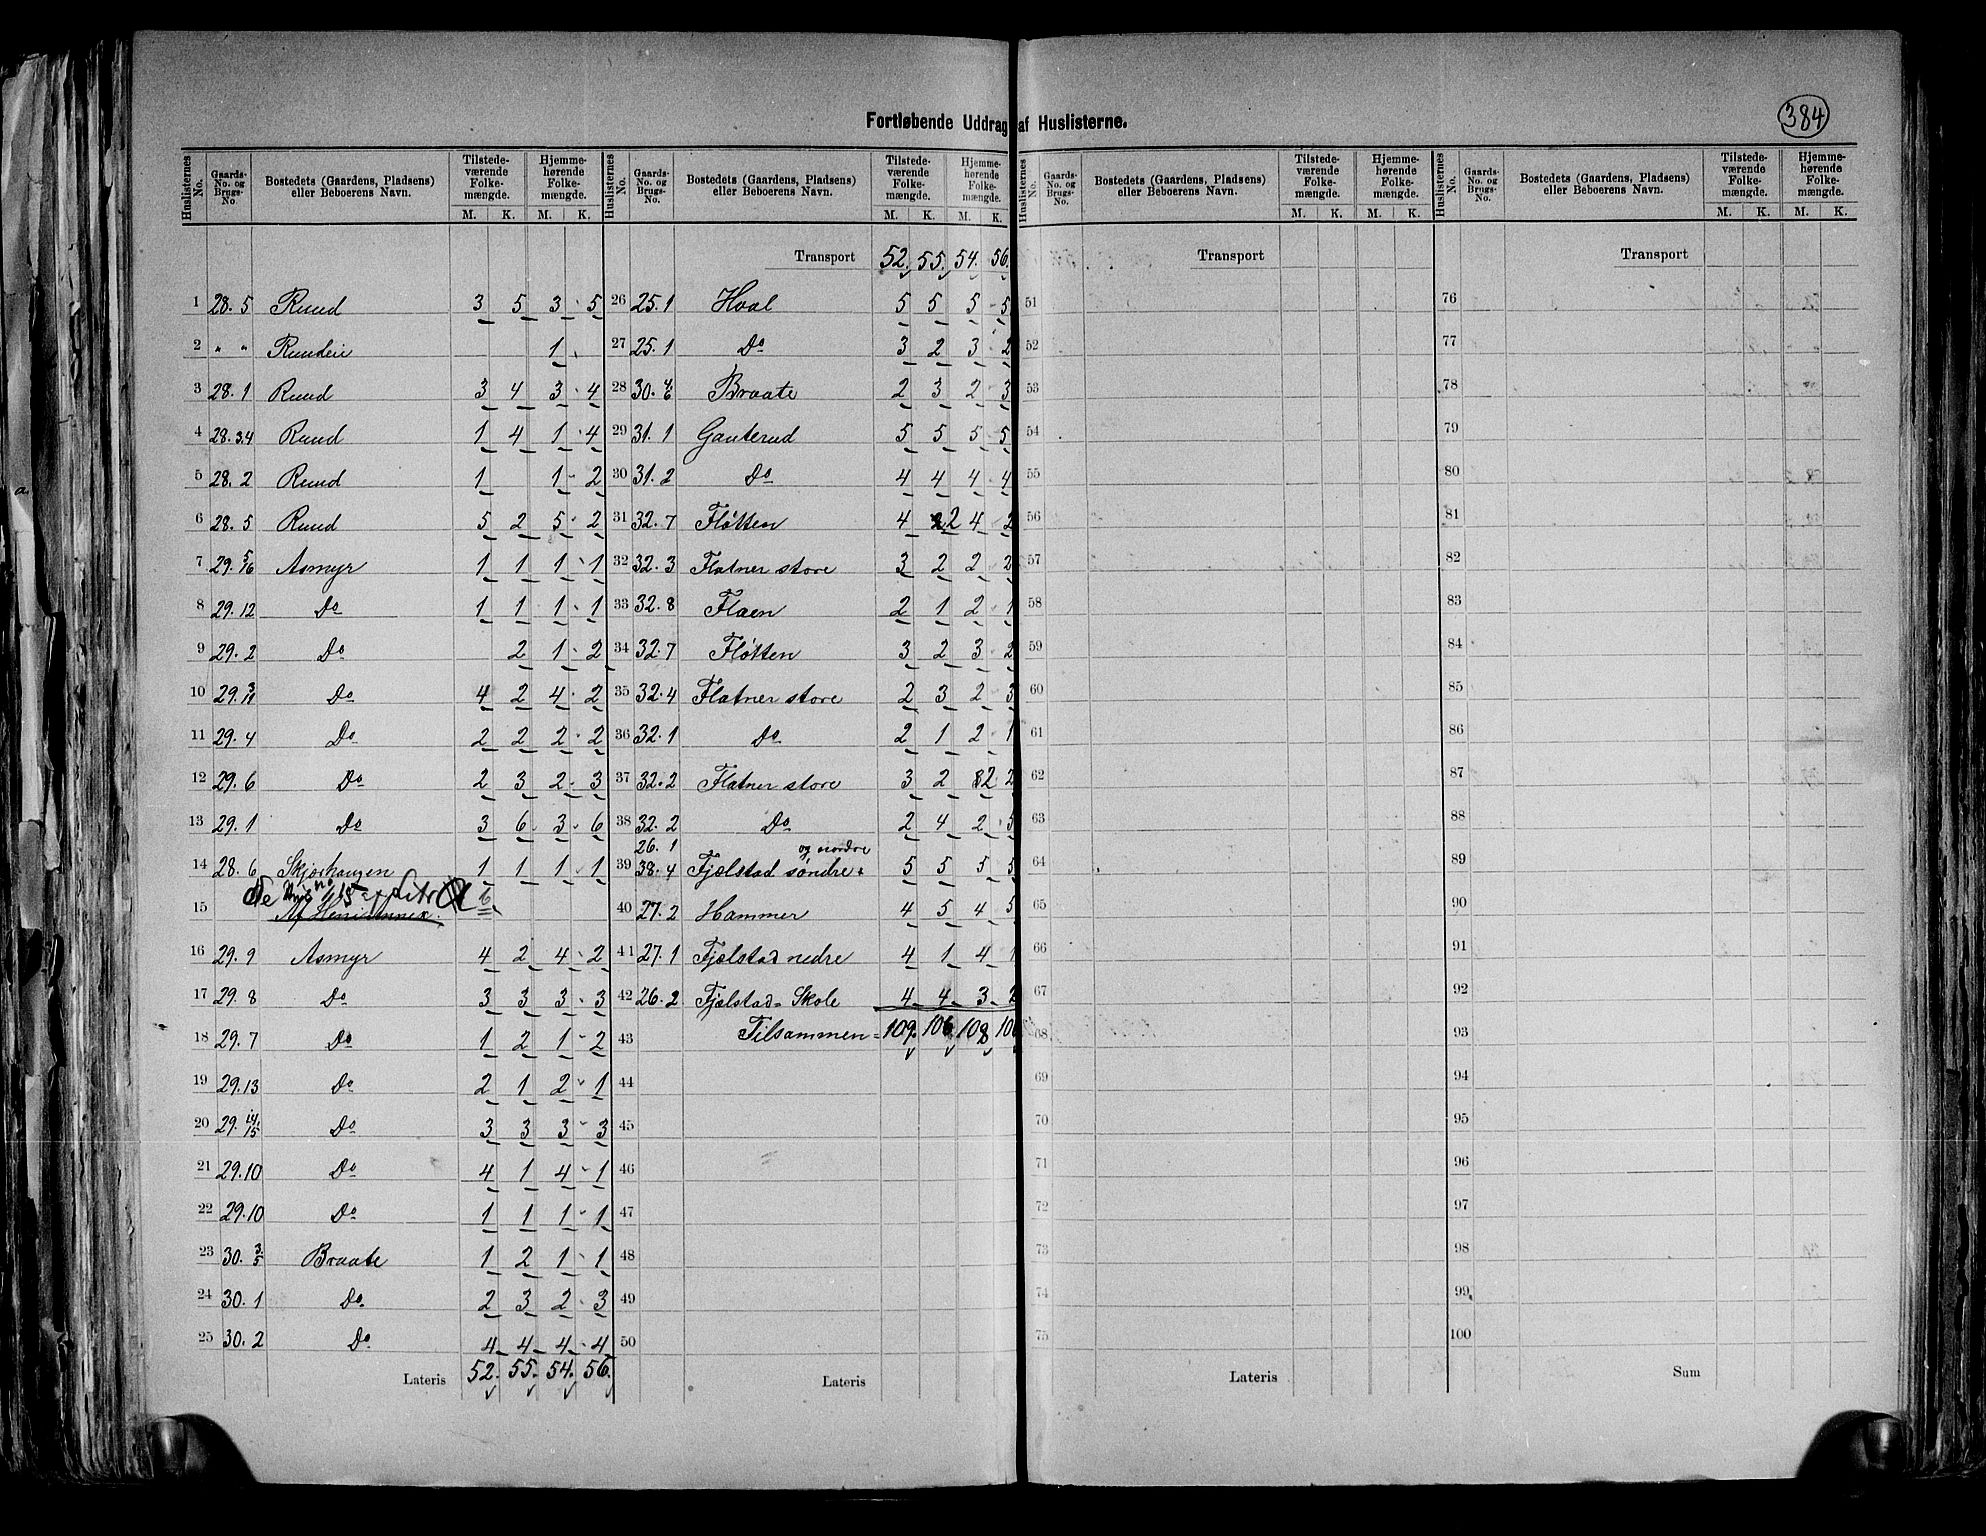 384
Fortløbende Uddrag af Huslisterne.
Huslisternes No. | Gaards-No. og Brugs-No. | Bostedets (Gaardens, Pladsens) eller Beboerens Navn. | Tilstedeværende Folkemængde. M. K. | Hjemmehørende Folkemængde. M. K.
1 28. 5 Ruud 3 5 3 5
2 " " Rudeie 1
3 28. 1 Ruud 3 4 3 4
4 28. 3.4 Ruud 1 4 1 4
5 28. 2 Ruud 1 1 2
6 28. 5 Ruud 5 2 5 2
7 29. 5/16 Asmyr 1 1 1 1
8 29. 12 Do 1 1 1 1
9 29. 2 Do 2 1 2
10 29. 3/11 Do 4 2 4 2
11 29. 4 Do 2 2 2 2
12 29. 6 Do 2 3 2 3
13 29. 1 Do 3 6 3 6
14 28. 6 Skjørhaugen 1 1 1 1
15
16 29. 9 Asmyr 4 2 4 2
17 29. 8 Do 3 3 3 3
18 29. 7 Do 1 2 1 2
19 29. 13 Do 2 1 2 1
20 29. 14/15 Do 3 3 3 3
21 29. 10 Do 4 1 4 1
22 29. 10 Do 1 1 1 1
23 30. 3/5 Braate 1 2 1 1
24 30. 1 Do 2 3 2 3
25 30. 2 Do 4 4 4 4
Lateris 52. 55. 54. 56.
Huslisternes No. | Gaards-No. og Brugs-No. | Bostedets (Gaardens, Pladsens) eller Beboerens Navn. | Tilstedeværende Folkemængde. M. K. | Hjemmehørende Folkemængde. M. K.
Transport 52. 55. 54. 56.
26 25. 1 Hval 5 5 5 5
27 25. 1 Do 3 2 3 2
28 30. 4/6 Braate 2 3 2 3
29 31. 1 Gauterud 5 5 5 5
30 31. 2 Do 4 4 4 4
31 32. 7 Fløtten 4 2 4 2
32 32. 3 Flatner store 3 2 2 2
33 32. 8 Flaen 2 1 2 1
34 32. 7 Fløtten 3 2 3 2
35 32. 4 Flatner store 2 3 2 3
36 32. 1 Do 2 1 2 1
37 32. 2 Flatner store 3 2 2 2
38 32. 2 Do 2 4 2 5
26. 1 og nordre
39 38. 4 Fjælstad søndre 5 5 5 5
40 27. 2 Hammer 4 5 4 5
41 27. 1 Fjælstad nedre 4 1 4 1
42 26. 2 Fjælstad Skole 4 4 3 2
43 Tilsammen = 109. 106. 108
44
45
46
47
48
49
50
Lateris
Huslisternes No. | Gaards-No. og Brugs-No. | Bostedets (Gaardens, Pladsens) eller Beboerens Navn. | Tilstedeværende Folkemængde. M. K. | Hjemmehørende Folkemængde. M. K.
Transport
51
52
53
54
55
56
57
58
59
60
61
62
63
64
65
66
67
68
69
70
71
72
73
74
75
Lateris
Huslisternes No. | Gaards-No. og Brugs-No. | Bostedets (Gaardens, Pladsens) eller Beboerens Navn. | Tilstedeværende Folkemængde. M. K. | Hjemmehørende Folkemængde. M. K.
Transport
76
77
78
79
80
81
82
83
84
85
86
87
88
89
90
91
92
93
94
95
96
97
98
99
100
Sum